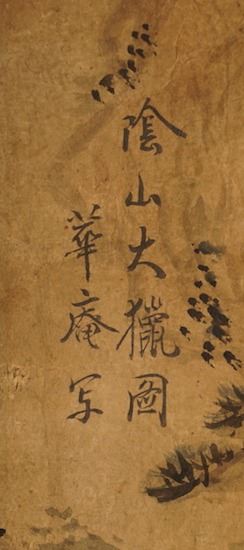 陰山大獵圖
華庵写